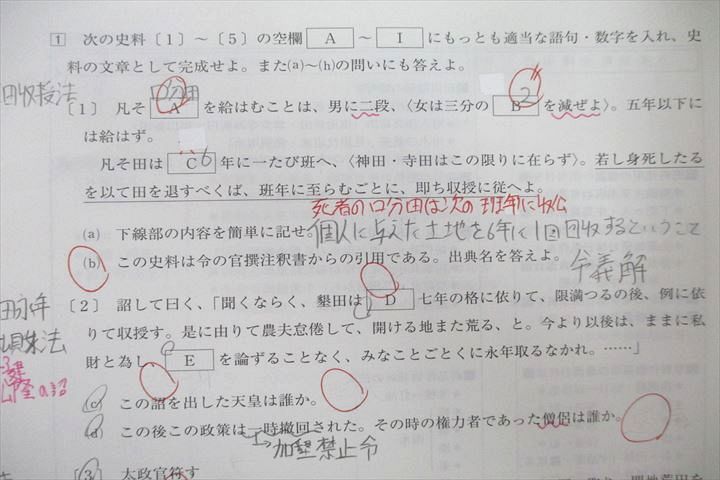 1 次の史料〔1〕～〔5〕の空欄 A ～ I にもっとも適当な語句・数字を入れ、史
料の文章として完成せよ。また(a)～(h)の問いにも答えよ。
口分田
田収授法
〔1〕 凡そ A を給はむことは、男に二段、〈女は三分の B 2 を減ぜよ〉。五年以下に
は給はず。
凡そ田は C 6 年に一たび班へ、〈神田・寺田はこの限りに在らず〉。若し身死したる
を以て田を退すべくは、班年に至らむごとに、即ち収授に従へよ。
死者の口分田は次の班年に収公
(a) 下線部の内容を簡単に記せ。個人に与えた土地を6年に1回回収するということ
(b) この史料は令の官撰注釈書からの引用である。出典名を答えよ。令義解
〔2〕 詔して曰く、「聞くならく、墾田は D 七年の格に依りて、限満つるの後、例に依
りて収授す。是に由りて農夫怠倦して、開ける地また荒る、と。今より以後は、ままに私
財と為し、 E を論ずることなく、みなことごとくに永年取るなかれ。……」
(c) この詔を出した天皇は誰か。
(d) この後この政策は一時撤回された。その時の権力者であった僧侶は誰か。
→加墾禁止令
〔3〕 太政官符す